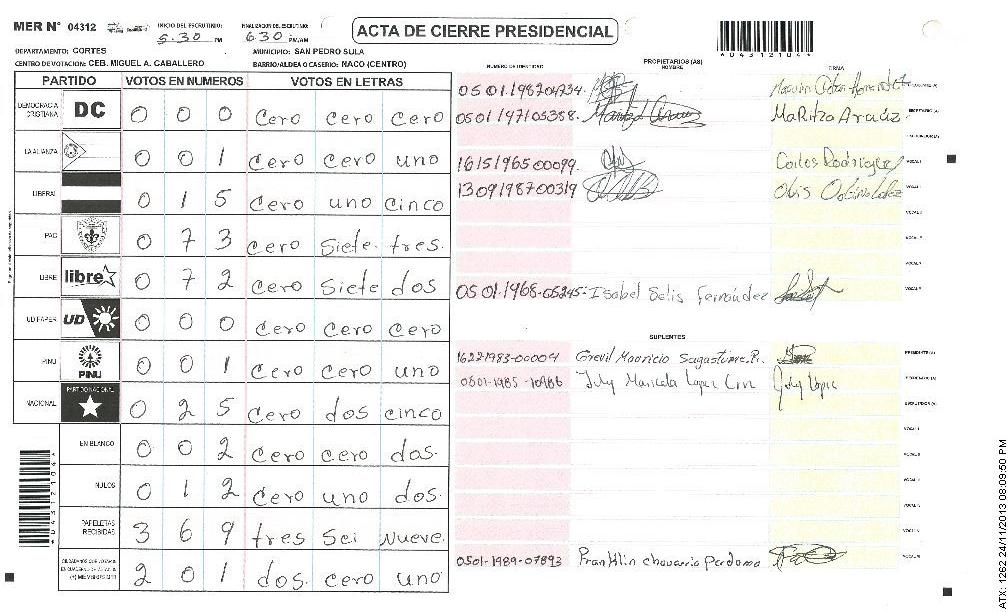 MER N° 04312 INICIO DEL ESCRUTINIO: 5.30 PM FINALIZACION DEL ESCRUTINIO: 6.30 PM/AM
ACTA DE CIERRE PRESIDENCIAL
DEPARTAMENTO: CORTES MUNICIPIO: SAN PEDRO SULA
CENTRO DE VOTACION: CEB. MIGUEL A. CABALLERO BARRIO/ALDEA O CASERIO: NACO (CENTRO)
PARTIDO VOTOS EN NUMEROS VOTOS EN LETRAS
DEMOCRACIA CRISTIANA DC 0 0 0 Cero Cero Cero
LA ALIANZA 0 0 1 Cero Cero uno
LIBERAL 0 1 5 Cero uno cinco
PAC 0 7 3 Cero Siete tres.
LIBRE libre 0 7 2 Cero Siete dos
UD FAPER UD 0 0 0 Cero Cero Cero
PINU PINU 0 0 1 Cero Cero uno
NACIONAL PARTIDO NACIONAL 0 2 5 Cero dos cinco
EN BLANCO 0 0 2 Cero cero dos.
NULOS 0 1 2 Cero uno dos.
PAPELETAS RECIBIDAS 3 6 9 tres Sei Nueve.
(+) MIEMBROS MER 2 0 1 dos. cero uno
NUMERO DE IDENTIDAD PROPIETARIOS (AS) NOMBRE FIRMA
0501.198204734.
0501197105358. MaRitza Arauz.
1615196500099. Carlos Rodriguez
1309198700319
0501.1968-05245. Isabel Solis Fernández
SUPLENTES
1622-1983-00009 Grevil Mauricio Sagastume.P. PRESIDENTE (A)
0501-1985-10986 July Maricela Lopez July Lopez
0501-1989-07893 Franklin chavarria perdomo
*04312104*
ATX: 1262 24/11/2013 08:09:50 PM